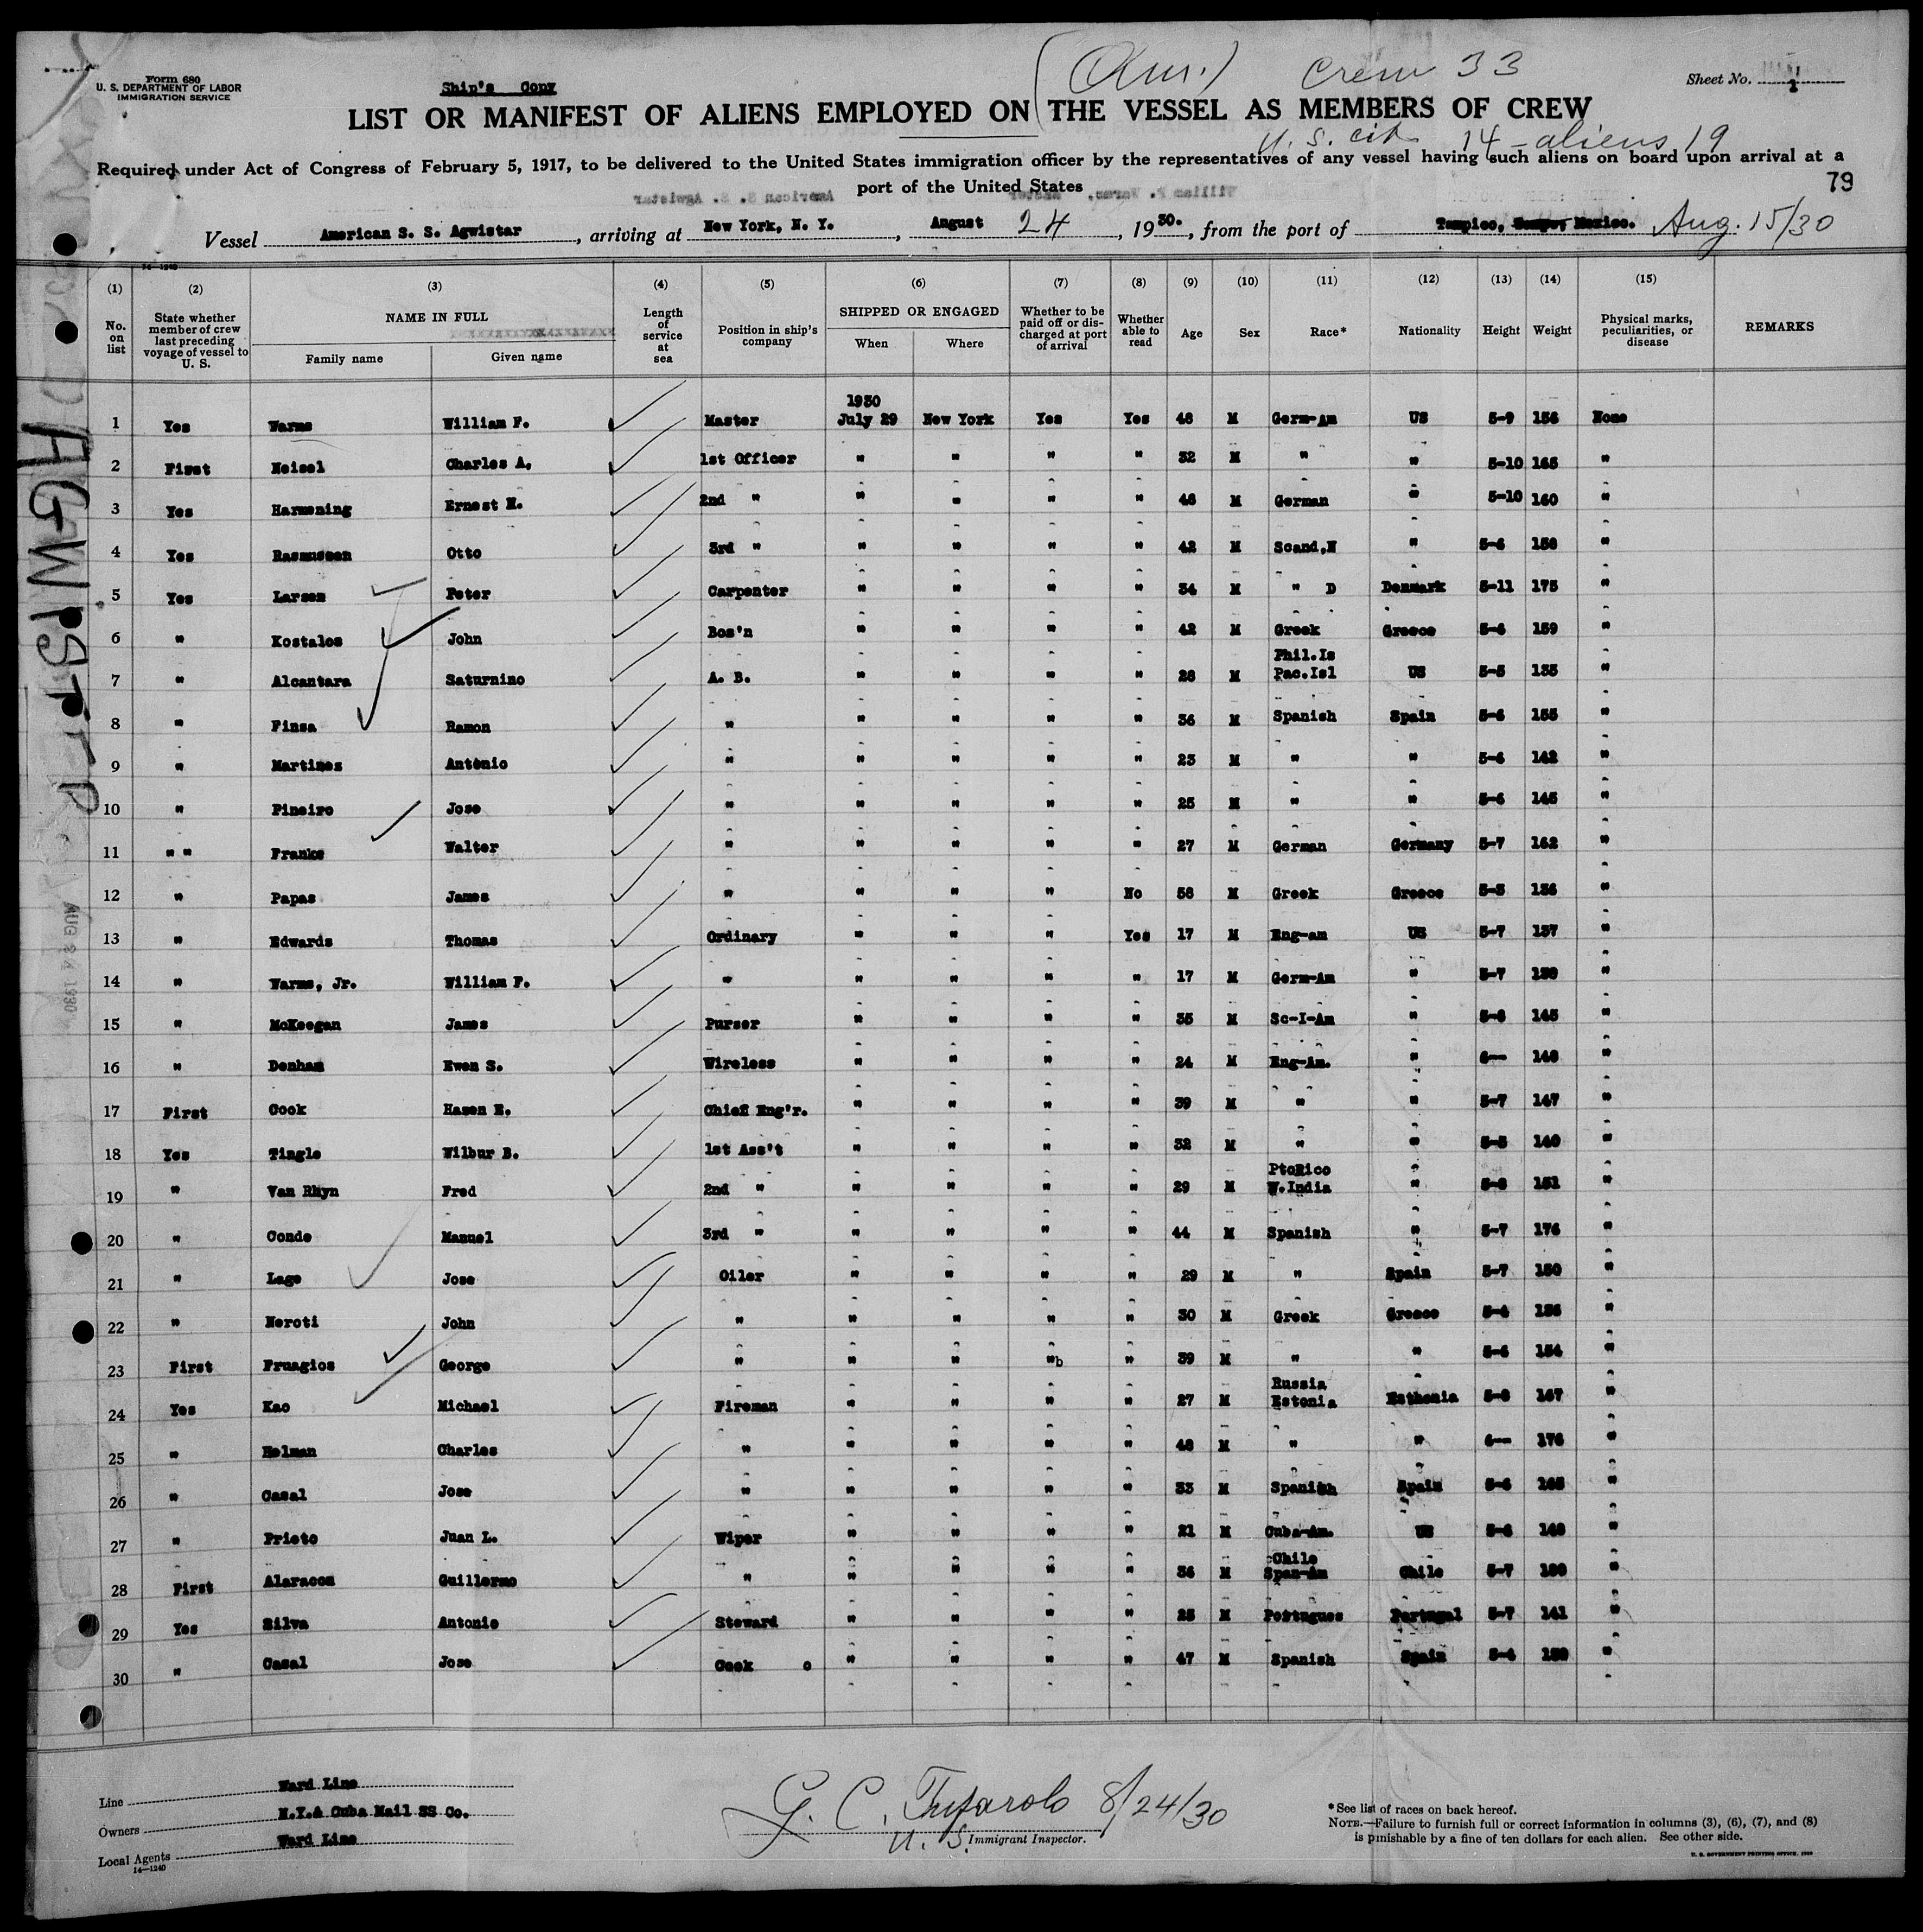 Form 680
U. S. DEPARTMENT OF LABOR
IMMIGRATION SERVICE
Ship's Copy
(Am.) Crew 33
Sheet No. 1
LIST OR MANIFEST OF ALIENS EMPLOYED ON THE VESSEL AS MEMBERS OF CREW
U. S. cit 14 - aliens 19
Required under Act of Congress of February 5, 1917, to be delivered to the United States immigration officer by the representatives of any vessel having such aliens on board upon arrival at a
port of the United States
79
Vessel American S. S. Agwistar, arriving at New York, N. Y., August 24, 1930., from the port of Tampico, Mexico. Aug. 15/30
14-1240
(1) (2) (3) (4) (5) (6) (7) (8) (9) (10) (11) (12) (13) (14) (15)
No. on list | State whether member of crew last preceding voyage of vessel to U. S. | NAME IN FULL | Family name | Given name | Length of service at sea | Position in ship's company | SHIPPED OR ENGAGED | When | Where | Whether to be paid off or discharged at port of arrival | Whether able to read | Age | Sex | Race* | Nationality | Height | Weight | Physical marks, peculiarities, or disease | REMARKS
1930
1 Yes Warms William F. Master July 29 New York Yes Yes 46 M Germ-Am US 5-9 156 None
2 First Neisel Charles A. 1st Officer " " " " 32 M " " 5-10 165 "
3 Yes Harmening Ernest H. 2nd " " " " " 46 M German " 5-10 160 "
4 Yes Rasmussen Otto 3rd " " " " " 42 M Scand,N " 5-6 158 "
5 Yes Larsen Peter Carpenter " " " " 34 M " D Denmark 5-11 175 "
6 " Kostalos John Bos'n " " " " 42 M Greek Greece 5-6 159 "
Phil.Is
7 " Alcantara Saturnino A. B. " " " " 28 M Pac.Isl US 5-5 135 "
8 " Finsa Ramon " " " " " 36 M Spanish Spain 5-6 155 "
9 " Martinez Antonio " " " " " 23 M " " 5-6 142 "
10 " Pineiro Jose " " " " " 25 M " " 5-6 145 "
11 " " Franke Walter " " " " " 27 M German Germany 5-7 162 "
12 " Papas James " " " " No 58 M Greek Greece 5-5 136 "
13 " Edwards Thomas Ordinary " " " Yes 17 M Eng-am US 5-7 137 "
14 " Warms, Jr. William F. " " " " " 17 M Germ-Am " 5-7 "
15 " McKeegan James Purser " " " " 35 M Sc-I-Am " 5-8 145 "
16 " Denham Ewen S. Wireless " " " " 24 M Eng-Am. " 6-- 148 "
17 First Cook Hazen E. Chief Eng'r. " " " " 39 M " " 5-7 147 "
18 Yes Tingle Wilbur B. 1st Ass't " " " " 32 M " " 5-5 140 "
PtoRico
19 " Van Rhyn Fred 2nd " " " " " 29 M W.India " 5-8 151 "
20 " Conde Manuel 3rd " " " " " 44 M Spanish " 5-7 176 "
21 " Lage Jose Oiler " " " " 29 M " Spain 5-7 "
22 " Neroti John " " " " " 30 M Greek Greece 5-4 "
23 First Fruagios George " " " "b " 39 M " " 5-6 154 "
Russia
24 Yes Kao Michael Fireman " " " " 27 M Estonia Esthonia 5-8 167 "
25 " Helman Charles " " " " " 48 M " " 6-- 176 "
26 " Casal Jose " " " " " 33 M Spanish Spain 5-6 165 "
27 " Prieto Juan L. Wiper " " " " 21 M Cuba-Am. US 5-6 148 "
Chile
28 First Alaracon Guillermo " " " " " 36 M Span-Am Chile 5-7 "
29 Yes Silva Antonio Steward " " " " 25 M Portugues Portugal 5-7 141 "
30 " Casal Jose Cook o " " " " 47 M Spanish Spain 5-4 "
AGWISTAR
AUG 24 1930
Line Ward Line
Owners N.Y.& Cuba Mail SS Co.
Local Agents Ward Line
14-1240
G. C. Tufarolo 8/24/30
U. S. Immigrant Inspector.
*See list of races on back hereof.
NOTE.—Failure to furnish full or correct information in columns (3), (6), (7), and (8)
is punishable by a fine of ten dollars for each alien. See other side.
U. S. GOVERNMENT PRINTING OFFICE